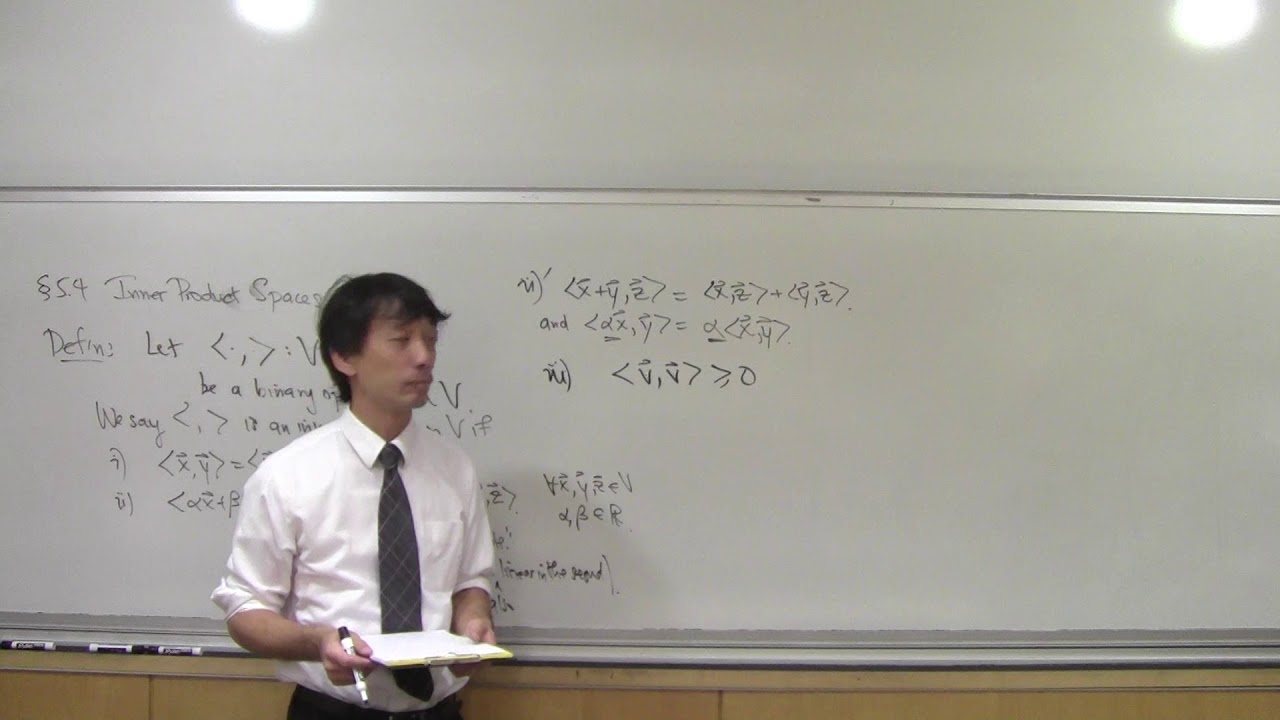 §5.4 Inner Product Spaces
Defin: Let <·,·> : V
be a binary op V
We say < , > is an in n V if
i) <x⃗,y⃗> = <
ii) <αx⃗+β ,z⃗>. ∀x⃗,y⃗,z⃗ ∈ V
α,β ∈ ℝ.
linear in the second).
also
ii)' <x⃗+y⃗,z⃗> = <x⃗,z⃗>+<y⃗,z⃗>.
and <αx⃗,y⃗> = α<x⃗,y⃗>.
iii) <v⃗,v⃗> ⩾ 0